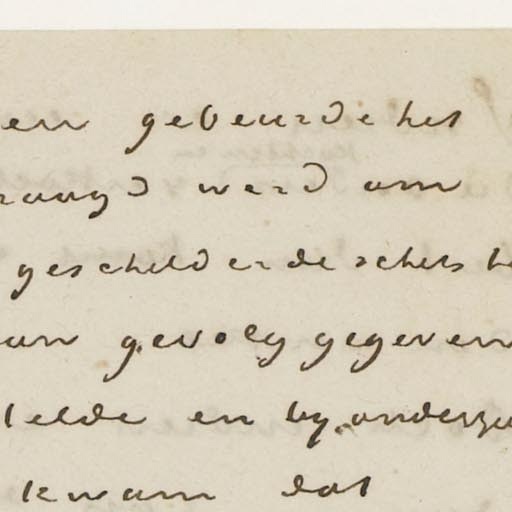 en gebeurde het
raagd werd om
geschilderde schets
aan gevolg gegeven
telde en by onderzo
kwam dat